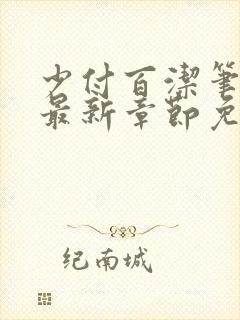 少付百潔筆
最新章節免
纪南城